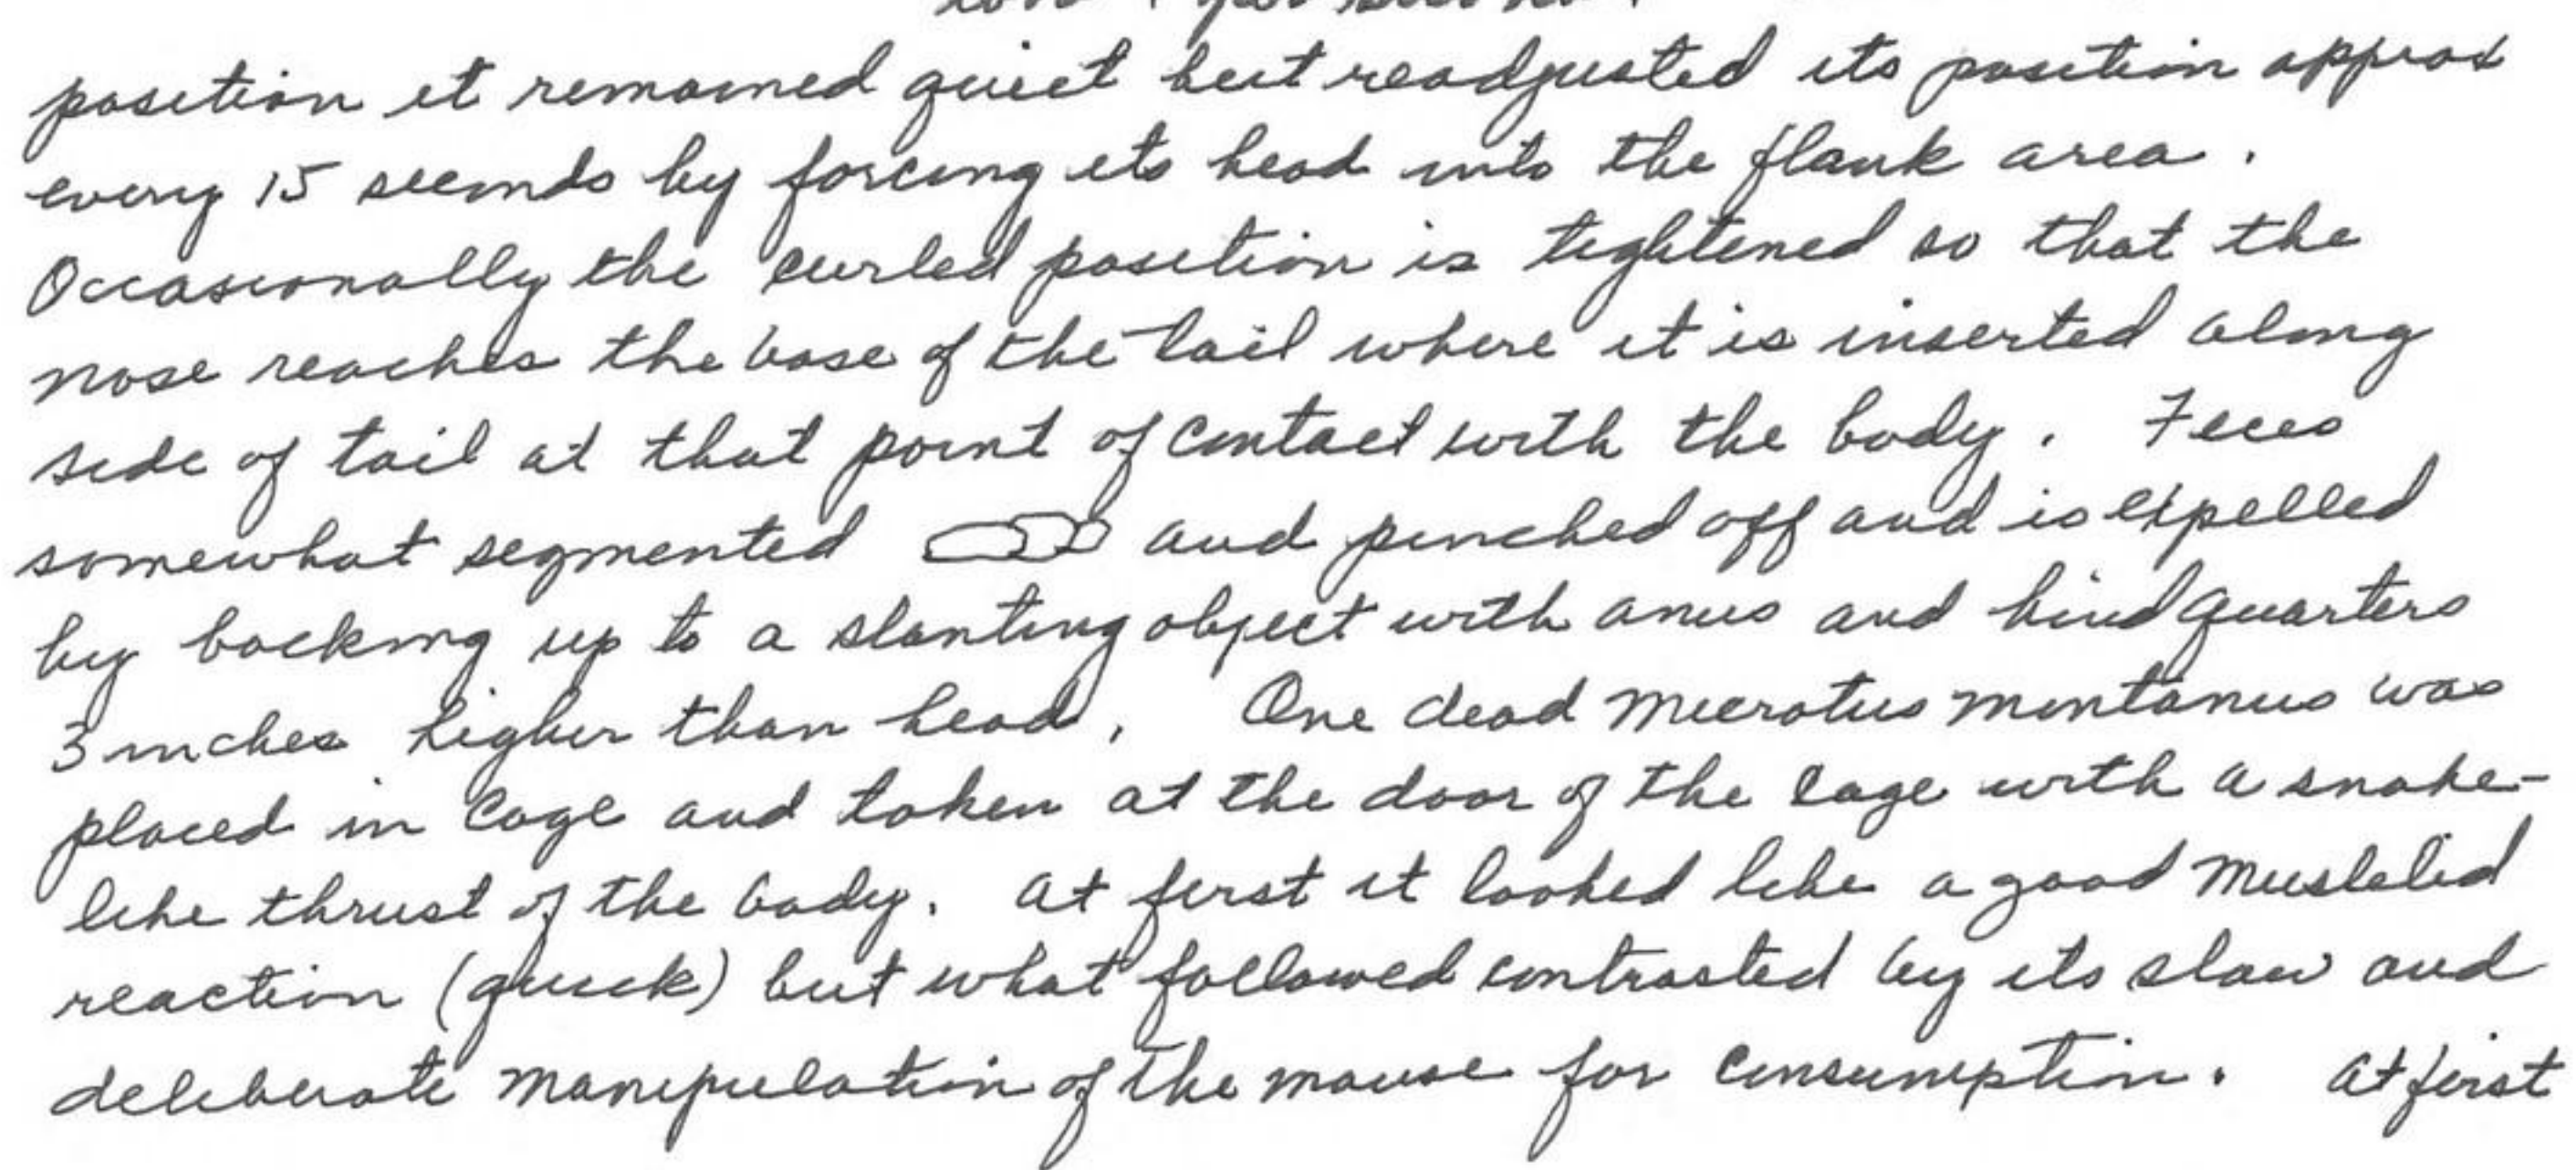 position it remained quiet but readjusted its position approx
every 15 seconds by forcing its head into the flank area.
Occasionally the curled position is tightened so that the
nose reaches the base of the tail where it is inserted along
side of tail at that point of contact with the body. Feces
somewhat segmented and pinched off and is expelled
by backing up to a slanting object with anus and hind quarters
3 inches higher than head. One dead Microtus montanus was
placed in cage and taken at the door of the cage with a snake-
like thrust of the body. At first it looked like a good Mustelid
reaction (quick) but what followed contrasted by its slow and
deliberate manipulation of the mouse for consumption. At first